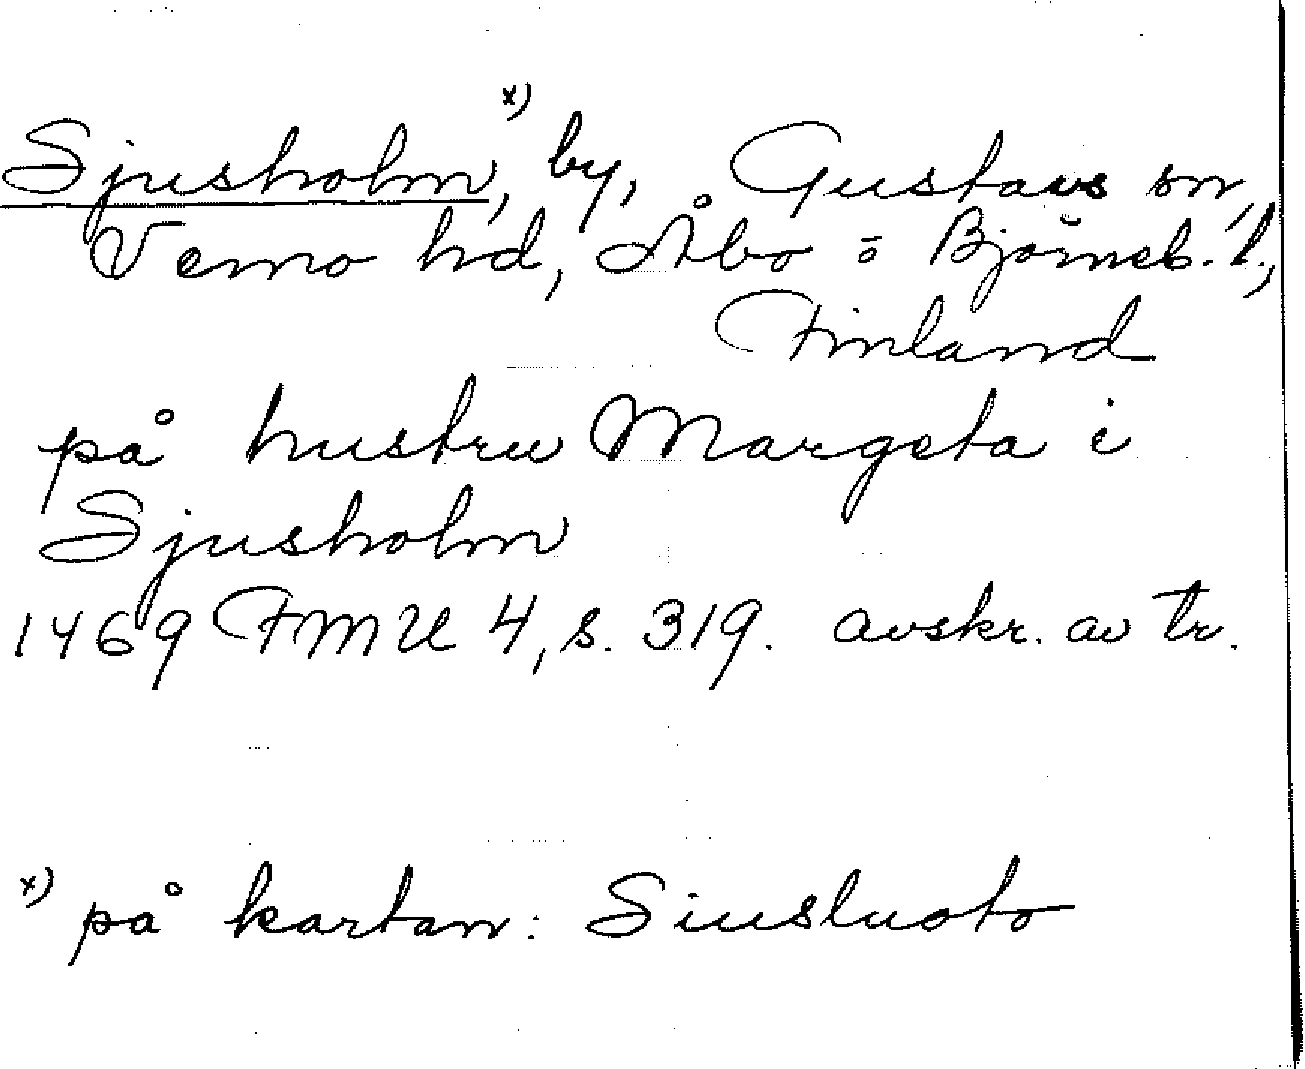 Sjusholm,ˣ⁾ by, Gustavs sn,
Vemo hd, Åbo o Björneb. l.,
Finland
på hustru Margeta i
Sjusholm
1469 FMU 4, s. 319. avskr. av tr.
x) på kartan: Siusluoto